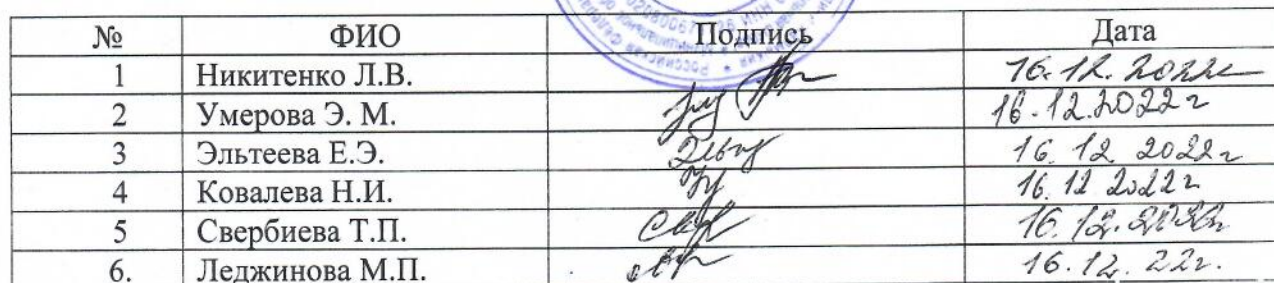 № ФИО Подпись Дата
1 Никитенко Л.В. 16.12.2022г
2 Умерова Э. М. 16.12.2022 г
3 Эльтеева Е.Э. 16.12 2022г
4 Ковалева Н.И. 16.12 2022г
5 Свербиева Т.П. 16.12.2022г
6. Леджинова М.П. 16.12.22г.